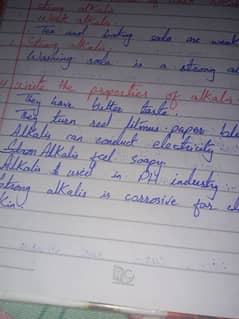 strong alkalis.
weak alkali.
Tea and baking soda are weak
Strong alkali.
Washing soda is a strong al
write the properties of alkalis.
They have bitter taste.
They turn red litmus paper blue
Alkalis can conduct electricity.
Strong Alkalis feel soapy.
Alkalis used in PH industry.
strong alkalis is corrosive for